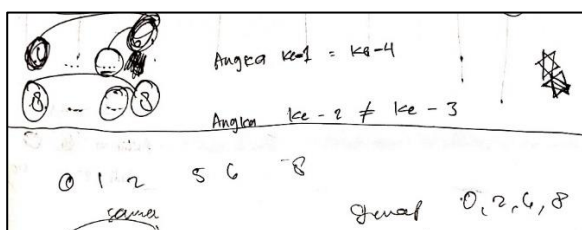 Angka ke-1 = ke-4
8 ... ... 8
Angka ke-2 ≠ ke-3
0 1 2 5 6 8
sama
genap 0, 2, 6, 8